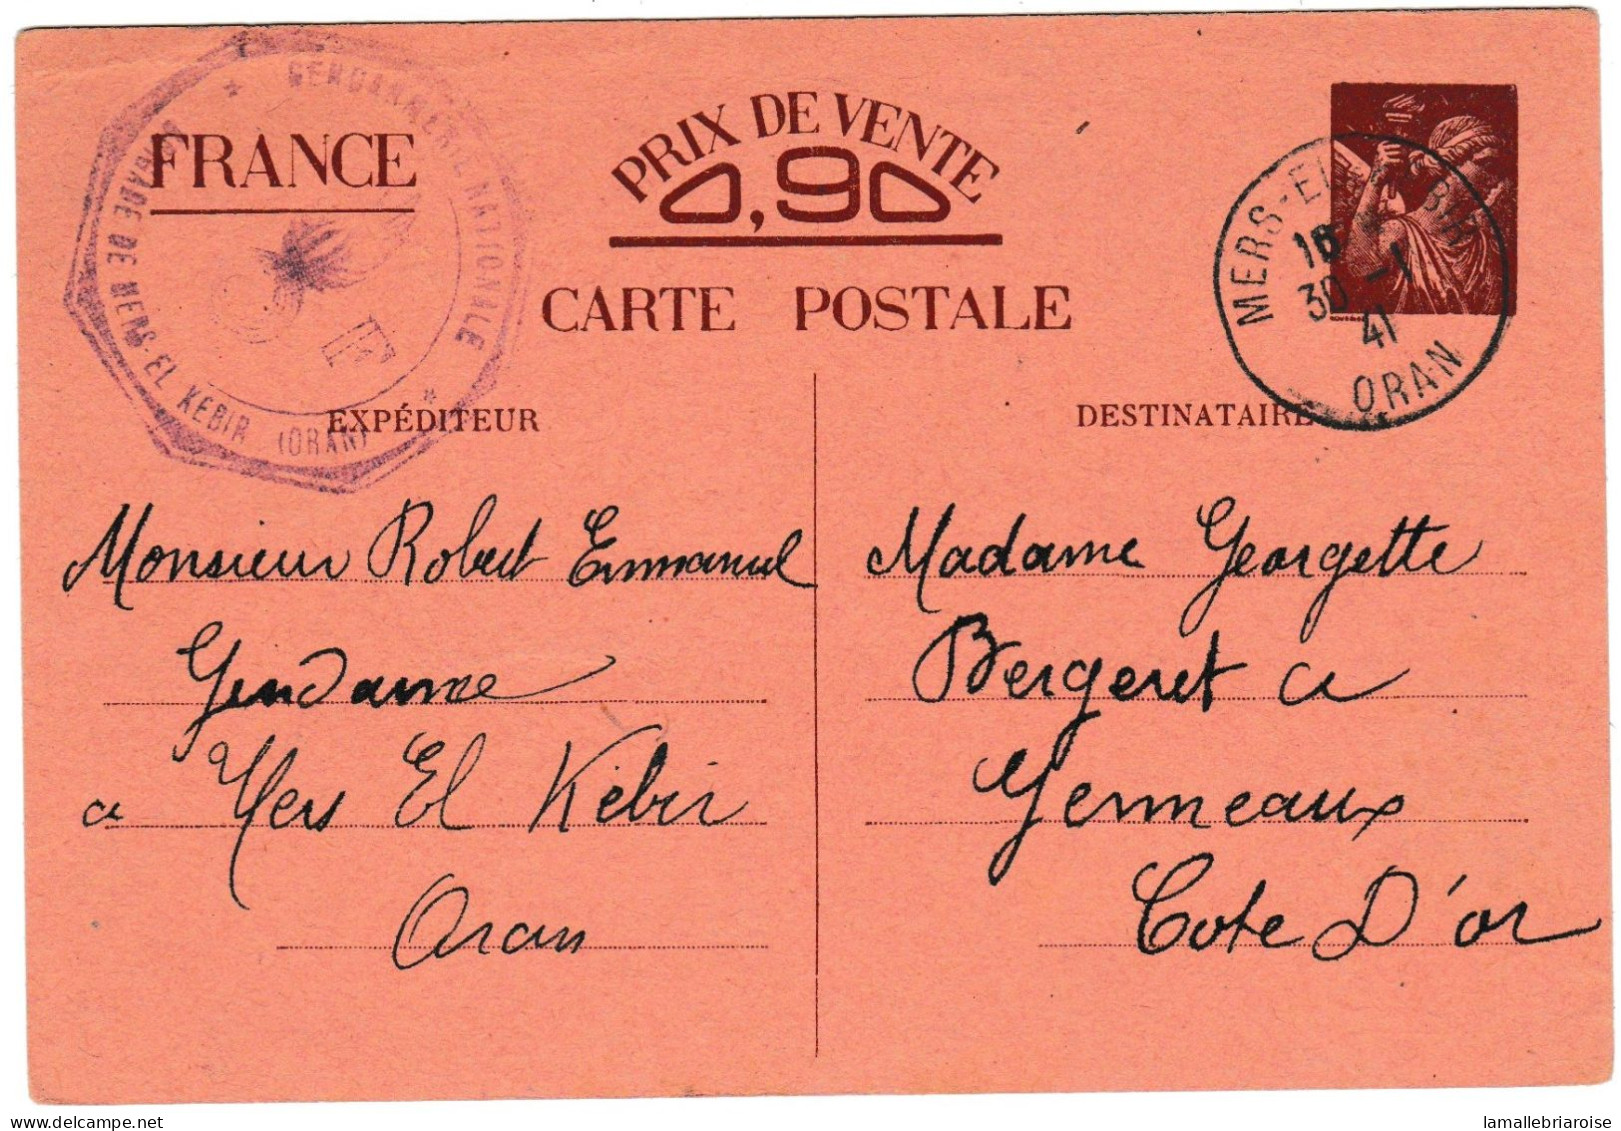 FRANCE
PRIX DE VENTE
0,90
CARTE POSTALE
GENDARMERIE NATIONALE
BRIGADE DE MERS-EL KEBIR (ORAN)
MERS-EL-KEBIR
18
30 -1
41
ORAN
EXPÉDITEUR
Monsieur Robert Emmanuel
Gendarme
a Mers El Kébir
Oran
DESTINATAIRE
Madame Georgette
Bergeret a
Gemeaux
Cote D'or
lamallebriaroise